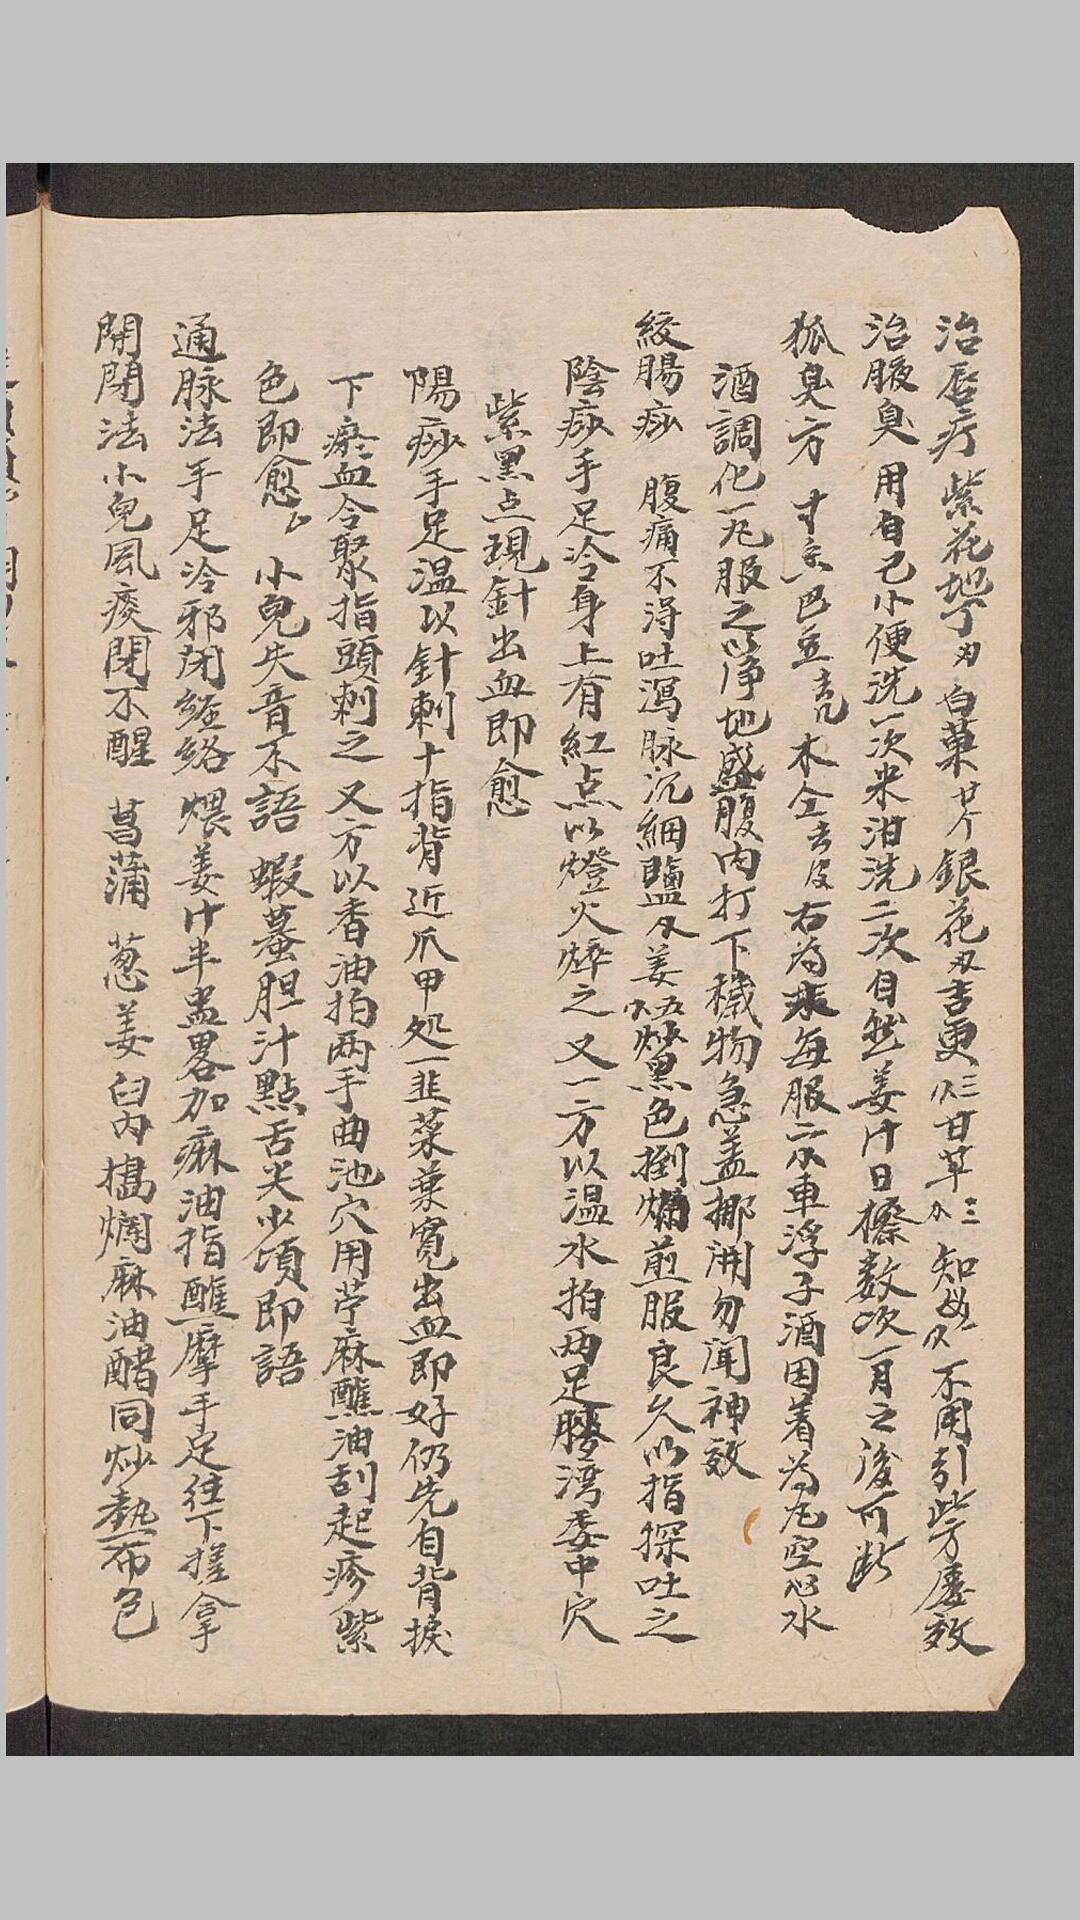 治唇疔 紫花地丁 白菓 銀花 甘草 知母 不用引 此方屡效
治腋臭 用自己小便洗一次米泔洗二次自然姜汁日擦数次一月之後可断
狐臭方 巴豆去 木 去皮右為末每服 車浮子酒 着為丸空心水
酒調化一丸服之 净地盛腹内打下穢物急盖挪開勿聞神效
絞腸痧 腹痛不淂吐瀉脉沉細鹽 姜 炒黑色 爛煎服良久以指探吐之
陰痧手足冷身上有紅点以燈火焠之 又一方以温水拍两足膝湾委中穴
紫黑点現針出血即愈
陽痧手足温以針刺十指背近爪甲処一韮菜葉寛出血即好仍先自背捩
下瘀血令聚指頭刺之 又方以香油拍两手曲池穴用苧麻醮油刮起疹紫
色即愈 小兒失音不語 蝦蟇胆汁點舌尖少頃即語
通脉法手足冷邪閉経絡 煨姜汁半盅畧加麻油指醮摩手足往下搓拿
開閉法小兒風痰閉不醒 菖蒲 葱姜 臼内擣爛麻油醋同炒熱布包